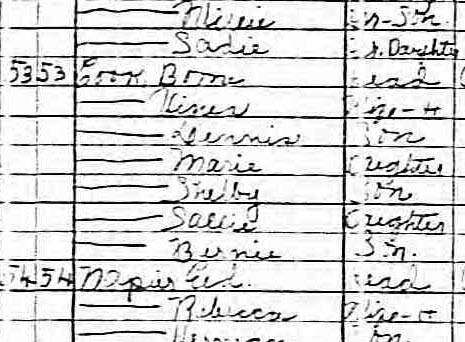 Gr-Son
Sadie Gr. Daughty
53 53 Cook Boon Head
Wife-H
Dennis Son
Marie Dughter
Shelby Son
Sallie Dughter
Bernie Son
54 54 Napier Head
Rebecca Wife-H
Son